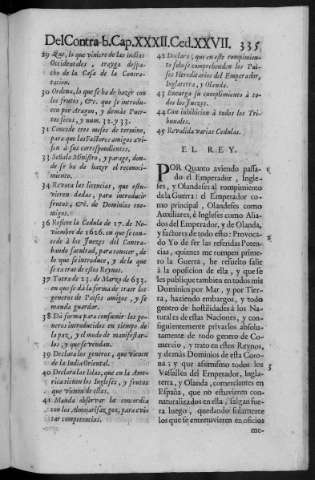 Del Contra-b. Cap. XXXII. Ced. XXVII. 335
29 Que, lo que viniere de las Indias
Occidentales, trayga despa-
cho de la Casa de la Contra-
tacion.
30 Ordena, lo que se ha de hazer con
los frutos, &c. que se introdu-
cen por Aragon, y demàs Puer-
tos secos, y num. 32. y 33.
31 Concede tres meses de termino,
para que los Factores amigos avi-
sen à sus correspondientes.
33 Señala Ministro, y parage, don-
de se ha de hazer el reconoci-
miento.
34 Revoca las licencias, que estu-
vieren dadas, para introducir
frutos, &c. de Dominios ene-
migos.
36 Refiere la Cedula de 17. de No-
viembre de 1626. en que se con-
cede à los Juezes del Contra-
bando facultad, para conocer, de
lo que se introduce, y de la que
se extrae de estos Reynos.
37 Trata de 23. de Março de 633.
en que se dà la forma de traer los
generos de Paises amigos, y se
manda guardar.
38 Dà forma para consumir los ge-
neros introducidos en tiempo de
la paz, y el modo de manifestar-
los, y que se vendan.
39 Declara los generos, que vienen
de la India Oriental.
40 Declara las Islas, que en la Ame-
rica tienen los Ingleses, y frutos
que vienen de ellas.
41 Manda observar la concordia
con los Almojarifazgos, para evi-
tar competencias.
42 Declara, que en este rompimien-
to solo se comprehenden los Pai-
ses Hereditarios del Emperador,
Inglaterra, y Olanda.
43 Encarga su cumplimiento à to-
dos los Juezes.
44 Con inhibicion à todos los Tri-
bunales.
45 Revalida varias Cedulas.
EL REY.
POR Quanto aviendo passa-
do el Emperador, Ingle-
ses, y Olandeses al rompimiento
de la Guerra: el Emperador co-
mo principal, Olandeses como
Auxiliares, è Ingleses como Alia-
dos del Emperador, y de Olanda,
y factores de todo esto: Provoca-
do Yo de las referidas Poten-
cias, quienes me rompen prime-
ro la Guerra, he resuelto salir
à la oposicion de ella, y que se
les publique tambien en todos mis
Dominios por Mar, y por Tier-
ra, haziendo embargos, y todo
genero de hostilidades à los Na-
turales de estas Naciones, y con-
siguientemente privarlos absolu-
tamente de todo genero de Co-
mercio, y trato en estos Reynos,
y demàs Dominios de esta Coro-
na; y que assimismo todos los
Vassallos del Emperador, Ingla-
terra, y Olanda, comerciantes en
España, que no estuvieren con-
naturalizados en ella, salgan fue-
ra luego, quedando solamente
los que se entretuvieren en oficios
me-